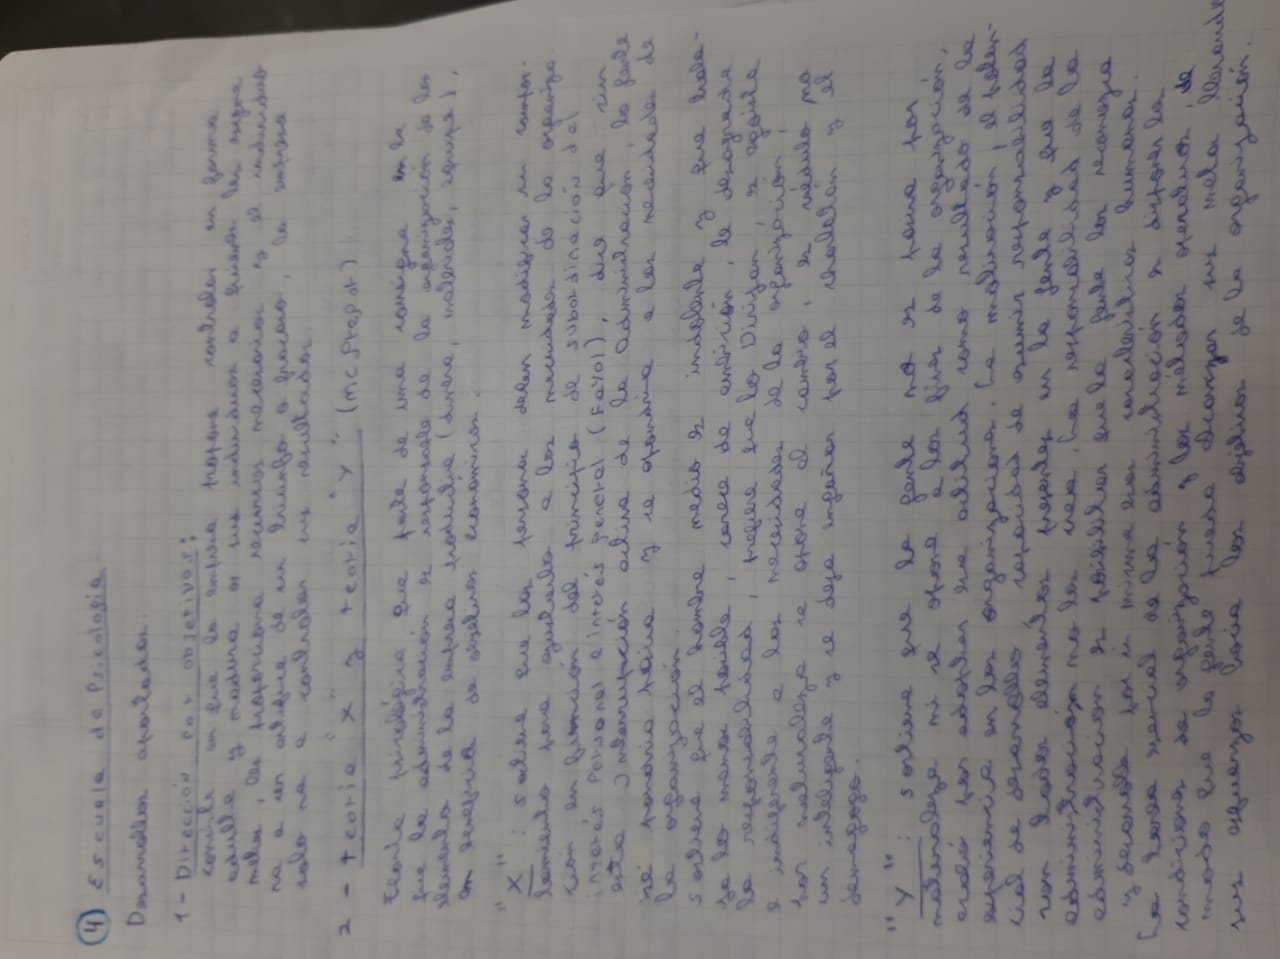 4 Escuela de Psicologia
Desarrollos aportados.
1 - Dirección por objetivos:
consiste en que la empresa propone controlar en forma
adulta y madura a sus individuos a quienes les asigna
metas, les proporciona recursos necesarios y el individuo
va a ser artífice de un triunfo o fracaso, la empresa
solo va a controlar sus resultados.
2 - teoria "X" y teoria "Y" (Mc Gregor)
Teoría psicológica que parte de una consigna en la
que la administración es responsable de la organización de los
elementos de la empresa productiva (dinero, materiales, equipo),
en beneficio de objetivos económicos.
"X": sostiene que las personas deben modificar su compor-
tamiento para ajustarlo a las necesidades de la organiza
ción en función del principio de subordinación del
interés Personal a interés general (Fayol), dice que sin
esta interrupción activa de la administración, la gente
se pondria pasiva y se opondria a las necesidades de
la organización.
Sostiene que el hombre medio es indolente y que traba-
ja lo menos posible, carece de ambición, le desagrada
la responsabilidad, prefiere que lo Dirijan, es egoista
e indiferente a las necesidades de la organización,
por naturaleza se opone al cambio, es crédulo no
un inteligente y se deja engañar por el charlatán y el
demagogo.
"Y": sostiene que la gente no es pasiva por
naturaleza ni se opone a los fines de la organización,
por adoptar esa actitud como resultado de la
experiencia en las organizaciones. La motivación, el poten-
cial de desarrollo, capacidad de asumir responsabilidad
son todos elementos presentes en la gente y que la
administración no los crea. La responsabilidad de la
administración es posibilitar que la gente los reconozca
y desarrolle por si misma esas caracteristicas humanas.
La tarea esencial de la administración es disponer las
condiciones de organización y los métodos operativos, de
modo que la gente pueda alcanzar sus metas llevando
sus esfuerzos hacia los objetivos de la organización.